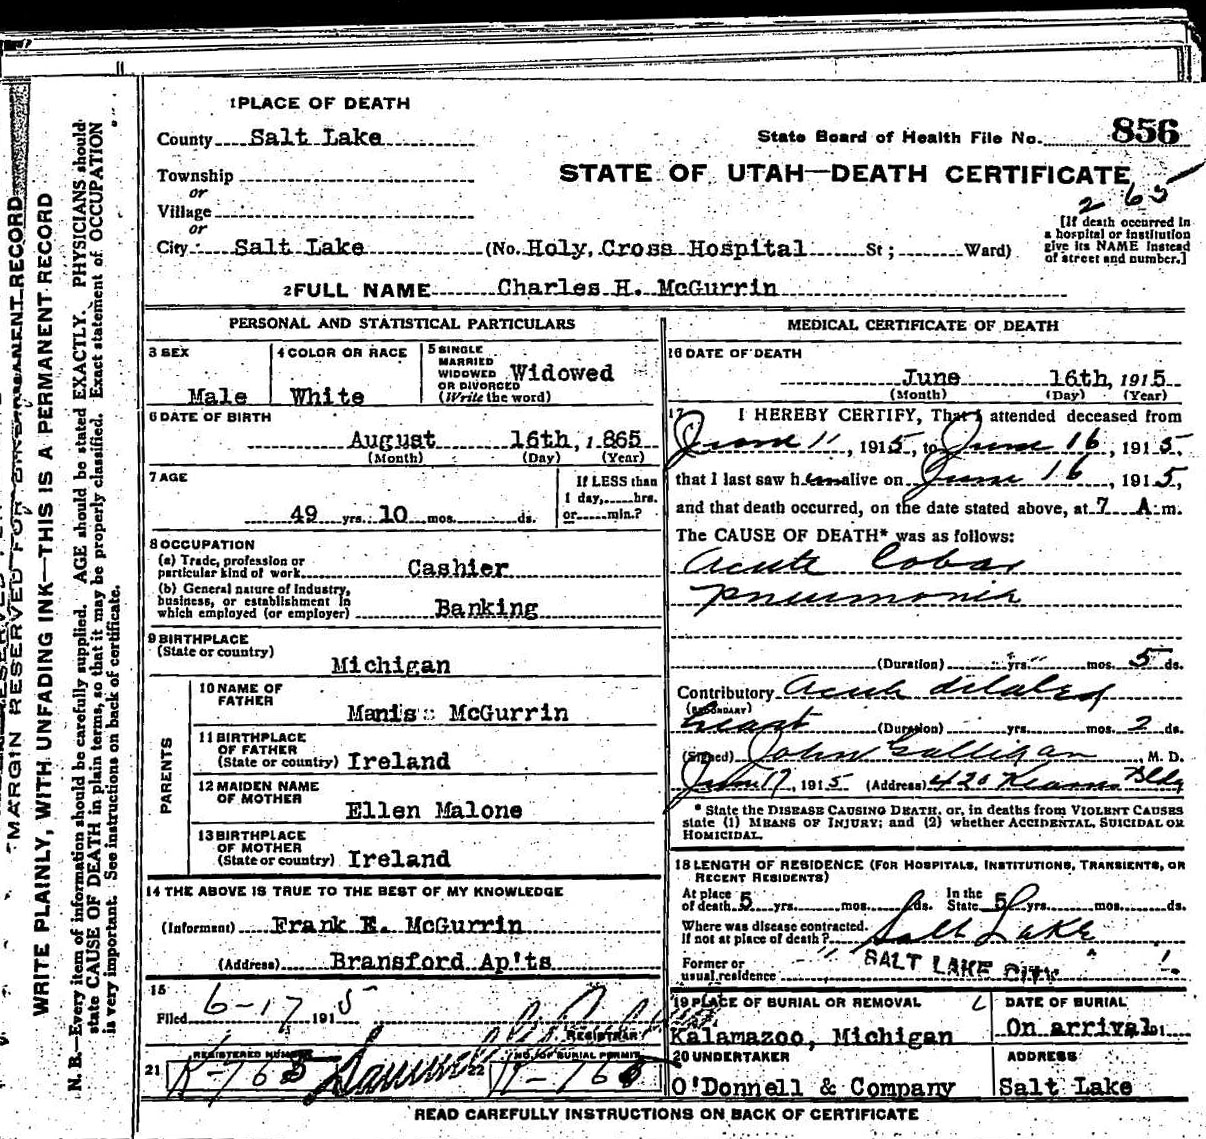 1 PLACE OF DEATH
County Salt Lake
State Board of Health File No. 856
STATE OF UTAH—DEATH CERTIFICATE
265
Township
or
Village
or
City Salt Lake (No. Holy Cross Hospital St; Ward)
[If death occurred in
a hospital or institution
give its NAME instead
of street and number.]
2 FULL NAME Charles H. McGurrin
PERSONAL AND STATISTICAL PARTICULARS
3 SEX
Male
4 COLOR OR RACE
White
5 SINGLE
MARRIED
WIDOWED
OR DIVORCED
(Write the word)
Widowed
6 DATE OF BIRTH
August 16th, 1865
(Month) (Day) (Year)
7 AGE
49 yrs. 10 mos. ds.
If LESS than
1 day, hrs.
or min.?
8 OCCUPATION
(a) Trade, profession or
particular kind of work Cashier
(b) General nature of Industry,
business, or establishment in
which employed (or employer) Banking
9 BIRTHPLACE
(State or country)
Michigan
PARENTS
10 NAME OF
FATHER
Manis McGurrin
11 BIRTHPLACE
OF FATHER
(State or country) Ireland
12 MAIDEN NAME
OF MOTHER
Ellen Malone
13 BIRTHPLACE
OF MOTHER
(State or country) Ireland
14 THE ABOVE IS TRUE TO THE BEST OF MY KNOWLEDGE
(Informant) Frank E. McGurrin
(Address) Bransford Ap'ts
15
Filed 6-17 1915
REGISTRAR
21 REGISTERED NUMBER
K-765
22 NO. OF BURIAL PERMIT
K-765
MEDICAL CERTIFICATE OF DEATH
16 DATE OF DEATH
June 16th, 1915
(Month) (Day) (Year)
17 I HEREBY CERTIFY, That I attended deceased from
June 11, 1915, to June 16, 1915,
that I last saw him alive on June 16, 1915,
and that death occurred, on the date stated above, at 7 A. m.
The CAUSE OF DEATH* was as follows:
Acute Lobar
Pneumonia
(Duration) yrs. mos. 5 ds.
Contributory Acute dilated
(SECONDARY)
heart (Duration) yrs. mos. 2 ds.
(Signed) John Galligan, M. D.
June 17, 1915 (Address) 420 Kearns Bldg
* State the DISEASE CAUSING DEATH, or, in deaths from VIOLENT CAUSES
state (1) MEANS OF INJURY; and (2) whether ACCIDENTAL, SUICIDAL OR
HOMICIDAL.
18 LENGTH OF RESIDENCE (FOR HOSPITALS, INSTITUTIONS, TRANSIENTS, OR
RECENT RESIDENTS)
At place
of death 5 yrs. mos. ds.
In the
State 5 yrs. mos. ds.
Where was disease contracted.
If not at place of death? Salt Lake
Former or
usual residence SALT LAKE CITY
19 PLACE OF BURIAL OR REMOVAL
Kalamazoo, Michigan
DATE OF BURIAL
On arrival 191
20 UNDERTAKER
O'Donnell & Company
ADDRESS
Salt Lake
READ CAREFULLY INSTRUCTIONS ON BACK OF CERTIFICATE
MARGIN RESERVED FOR
PERMANENT RECORD
WRITE PLAINLY, WITH UNFADING INK—THIS IS A PERMANENT RECORD
N. B.—Every item of information should be carefully supplied. AGE should be stated EXACTLY. PHYSICIANS should
state CAUSE OF DEATH in plain terms, so that it may be properly classified. Exact statement of OCCUPATION
is very important. See instructions on back of certificate.